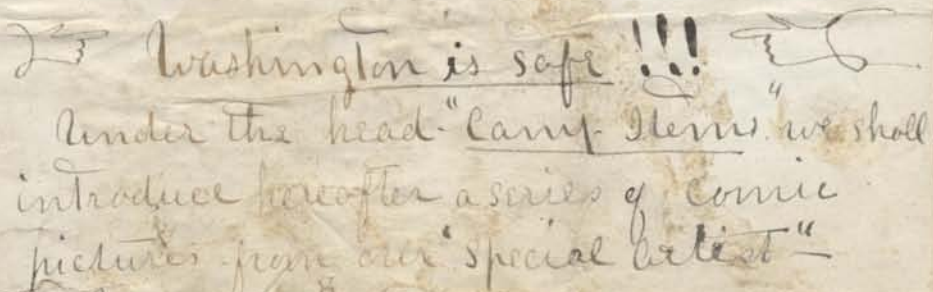 Washington is safe !!!
Under the head "Camp Items" we shall
introduce hereafter a series of comic
pictures from our "special artist" —